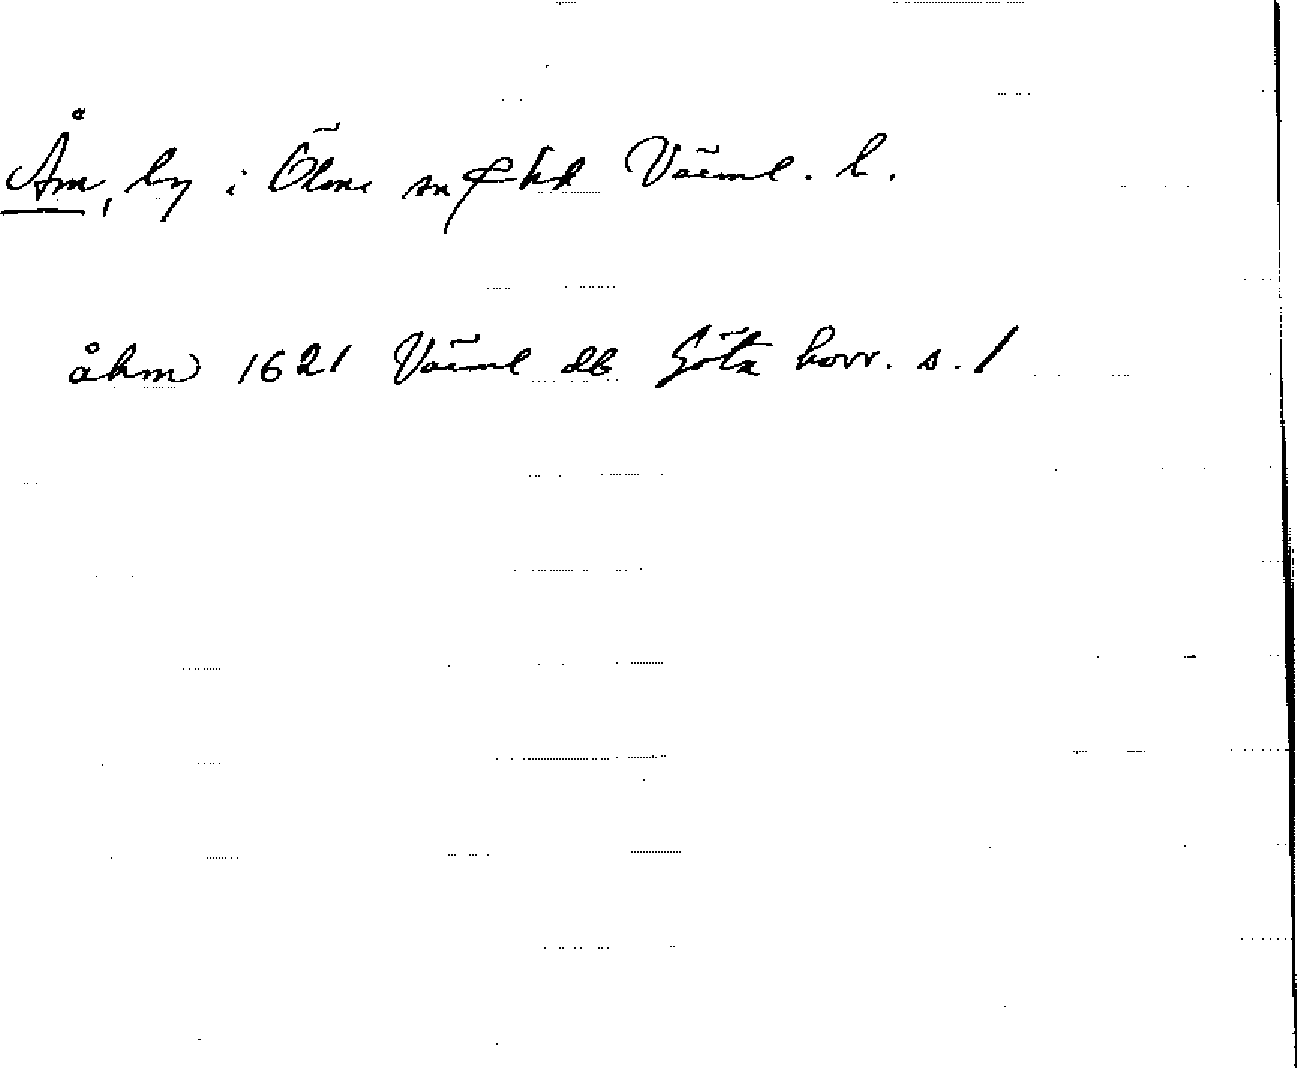 Åm, by i Ölme sn o hd Värml. l.
åhm 1621 Värml db Göta hovr. s. 1